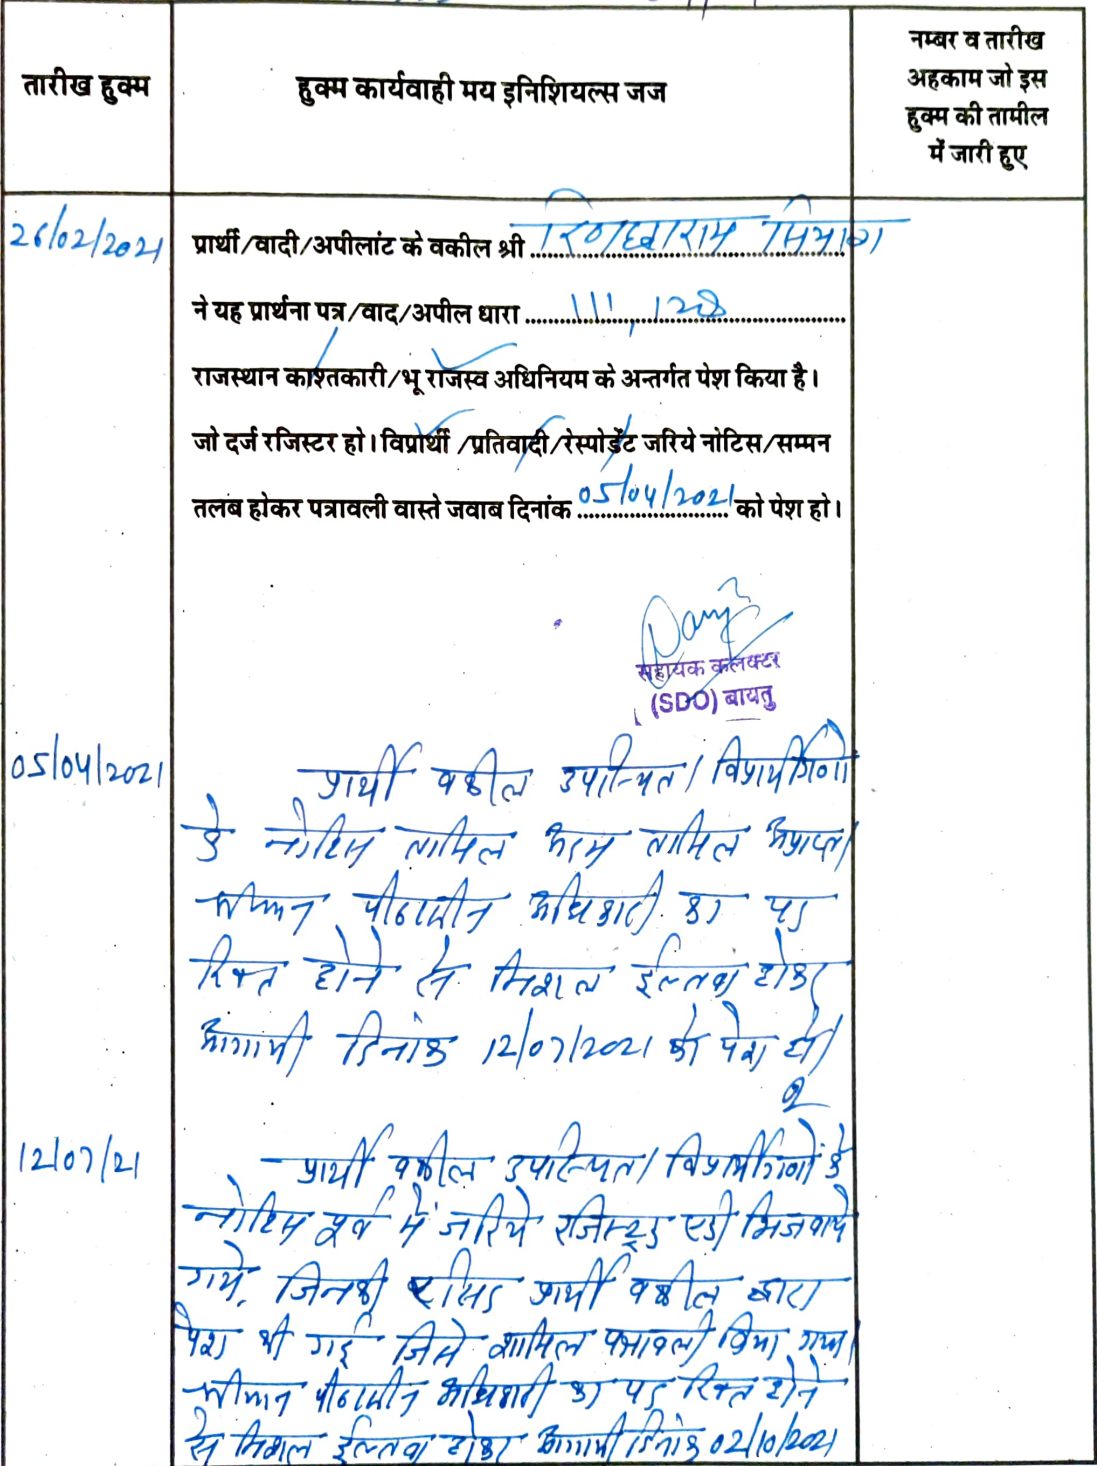 तारीख हुक्म
हुक्म कार्यवाही मय इनिशियल्स जज
नम्बर व तारीख
अहकाम जो इस
हुक्म की तामील
में जारी हुए
26/02/2021
प्रार्थी/वादी/अपीलांट के वकील श्री
ने यह प्रार्थना पत्र/वाद/अपील धारा 111, 128
राजस्थान काश्तकारी/भू राजस्व अधिनियम के अन्तर्गत पेश किया है।
जो दर्ज रजिस्टर हो। विप्रार्थी/प्रतिवादी/रेस्पोडेंट जरिये नोटिस/सम्मन
तलब होकर पत्रावली वास्ते जवाब दिनांक 05/04/2021 को पेश हो।
सहायक कलक्टर
(SDO) बायतु
05/04/2021
प्रार्थी वकील उपस्थित। विप्रार्थीगणो
के नोटिस तामिल अदम तामिल अप्राप्त।
श्रीमान पीठासीन अधिकारी का पद
रिक्त होने से मिशल ईल्तवा होकर
आगामी दिनांक 12/07/2021 को पेश हो।
12/07/21
प्रार्थी वकील उपस्थित। विप्रार्थीगणों के
नोटिस पूर्व में जरिये रजिस्ट्रड एडी भिजवाये
गये, जिनकी रसिद प्रार्थी वकील द्वारा
पेश की गई जिसे शामिल पत्रावली किया गया।
श्रीमान पीठासीन अधिकारी का पद रिक्त होने
से मिशल ईल्तवा होकर आगामी दिनांक 02/10/2021